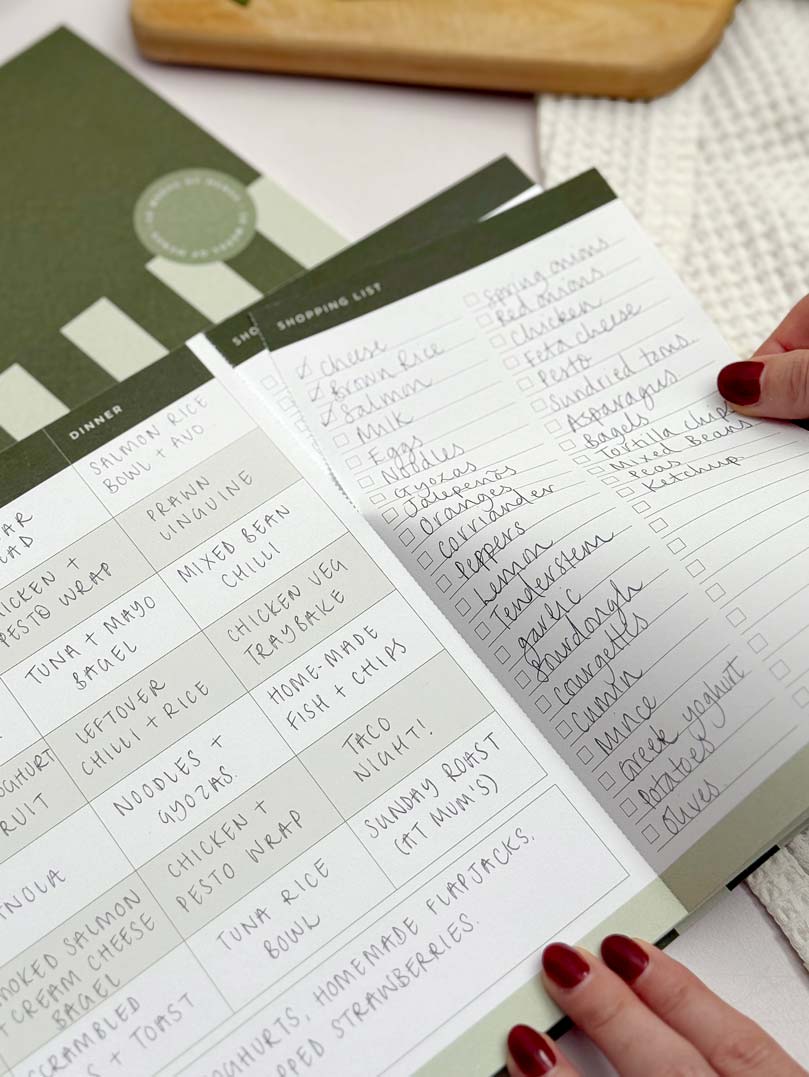 SHOPPING LIST
cheese
Brown Rice
Salmon
Milk
Eggs
Noodles
Gyozas
Jalepeños
Oranges
Corriander
Peppers
Lemon
Tenderstem
garlic
Sourdough
Courgettes
Cumin
Mince
Greek yoghurt
Potatoes
Olives
Spring onions
Red onions
Chicken
Feta cheese
Pesto
Sundried toms.
Asparagus
Bagels
Tortilla chips
Mixed Beans
Peas
Ketchup
SHO
DINNER
SALMON RICE
BOWL + AVO
PRAWN
LINGUINE
MIXED BEAN
CHILLI
CHICKEN VEG
TRAYBAKE
HOME-MADE
FISH + CHIPS
TACO
NIGHT!
SUNDAY ROAST
(AT MUM'S)
PESTO WRAP
TUNA + MAYO
BAGEL
LEFTOVER
CHILLI + RICE
NOODLES +
GYOZAS.
CHICKEN +
PESTO WRAP
TUNA RICE
BOWL
SALMON
CREAM CHEESE
BAGEL
+ TOAST
HOMEMADE FLAPJACKS,
STRAWBERRIES.